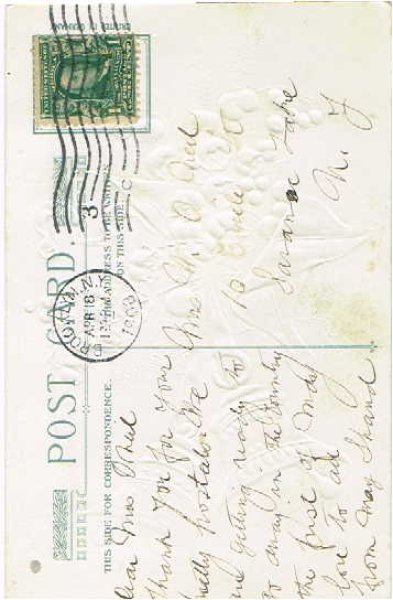 POST CARD.
THIS SIDE FOR CORRESPONDENCE.
THE ADDRESS TO BE WRITTEN
ON THIS SIDE.
PRINTED IN GERMANY
BROOKLYN, N.Y.
APR 18
12 M
1908
3
C
Dear Mrs O'Neil
Thank you for your
pretty postal. We
are getting ready to
go away in the Country
the first of May
love to all
from May
Mrs M. O'Neil
10 St
Saranac Lake
N. Y